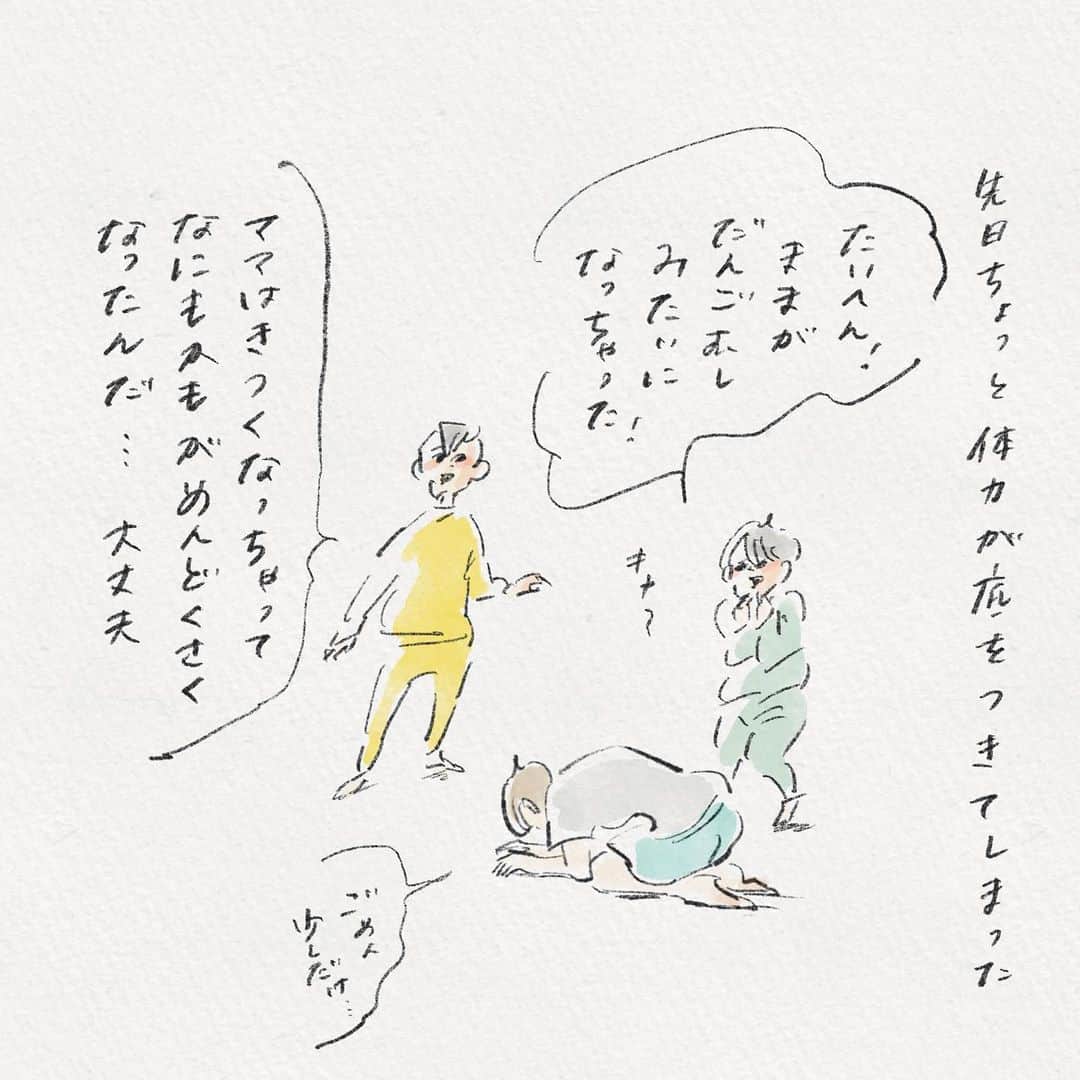 先日ちょっと体力が底をつきてしまった
たいへん!
ままが
だんごむし
みたいに
なっちゃった!
キャ〜
ママはきつくなっちゃって
なにもかもがめんどくさく
なったんだ… 大丈夫
ごめん
少しだけ…